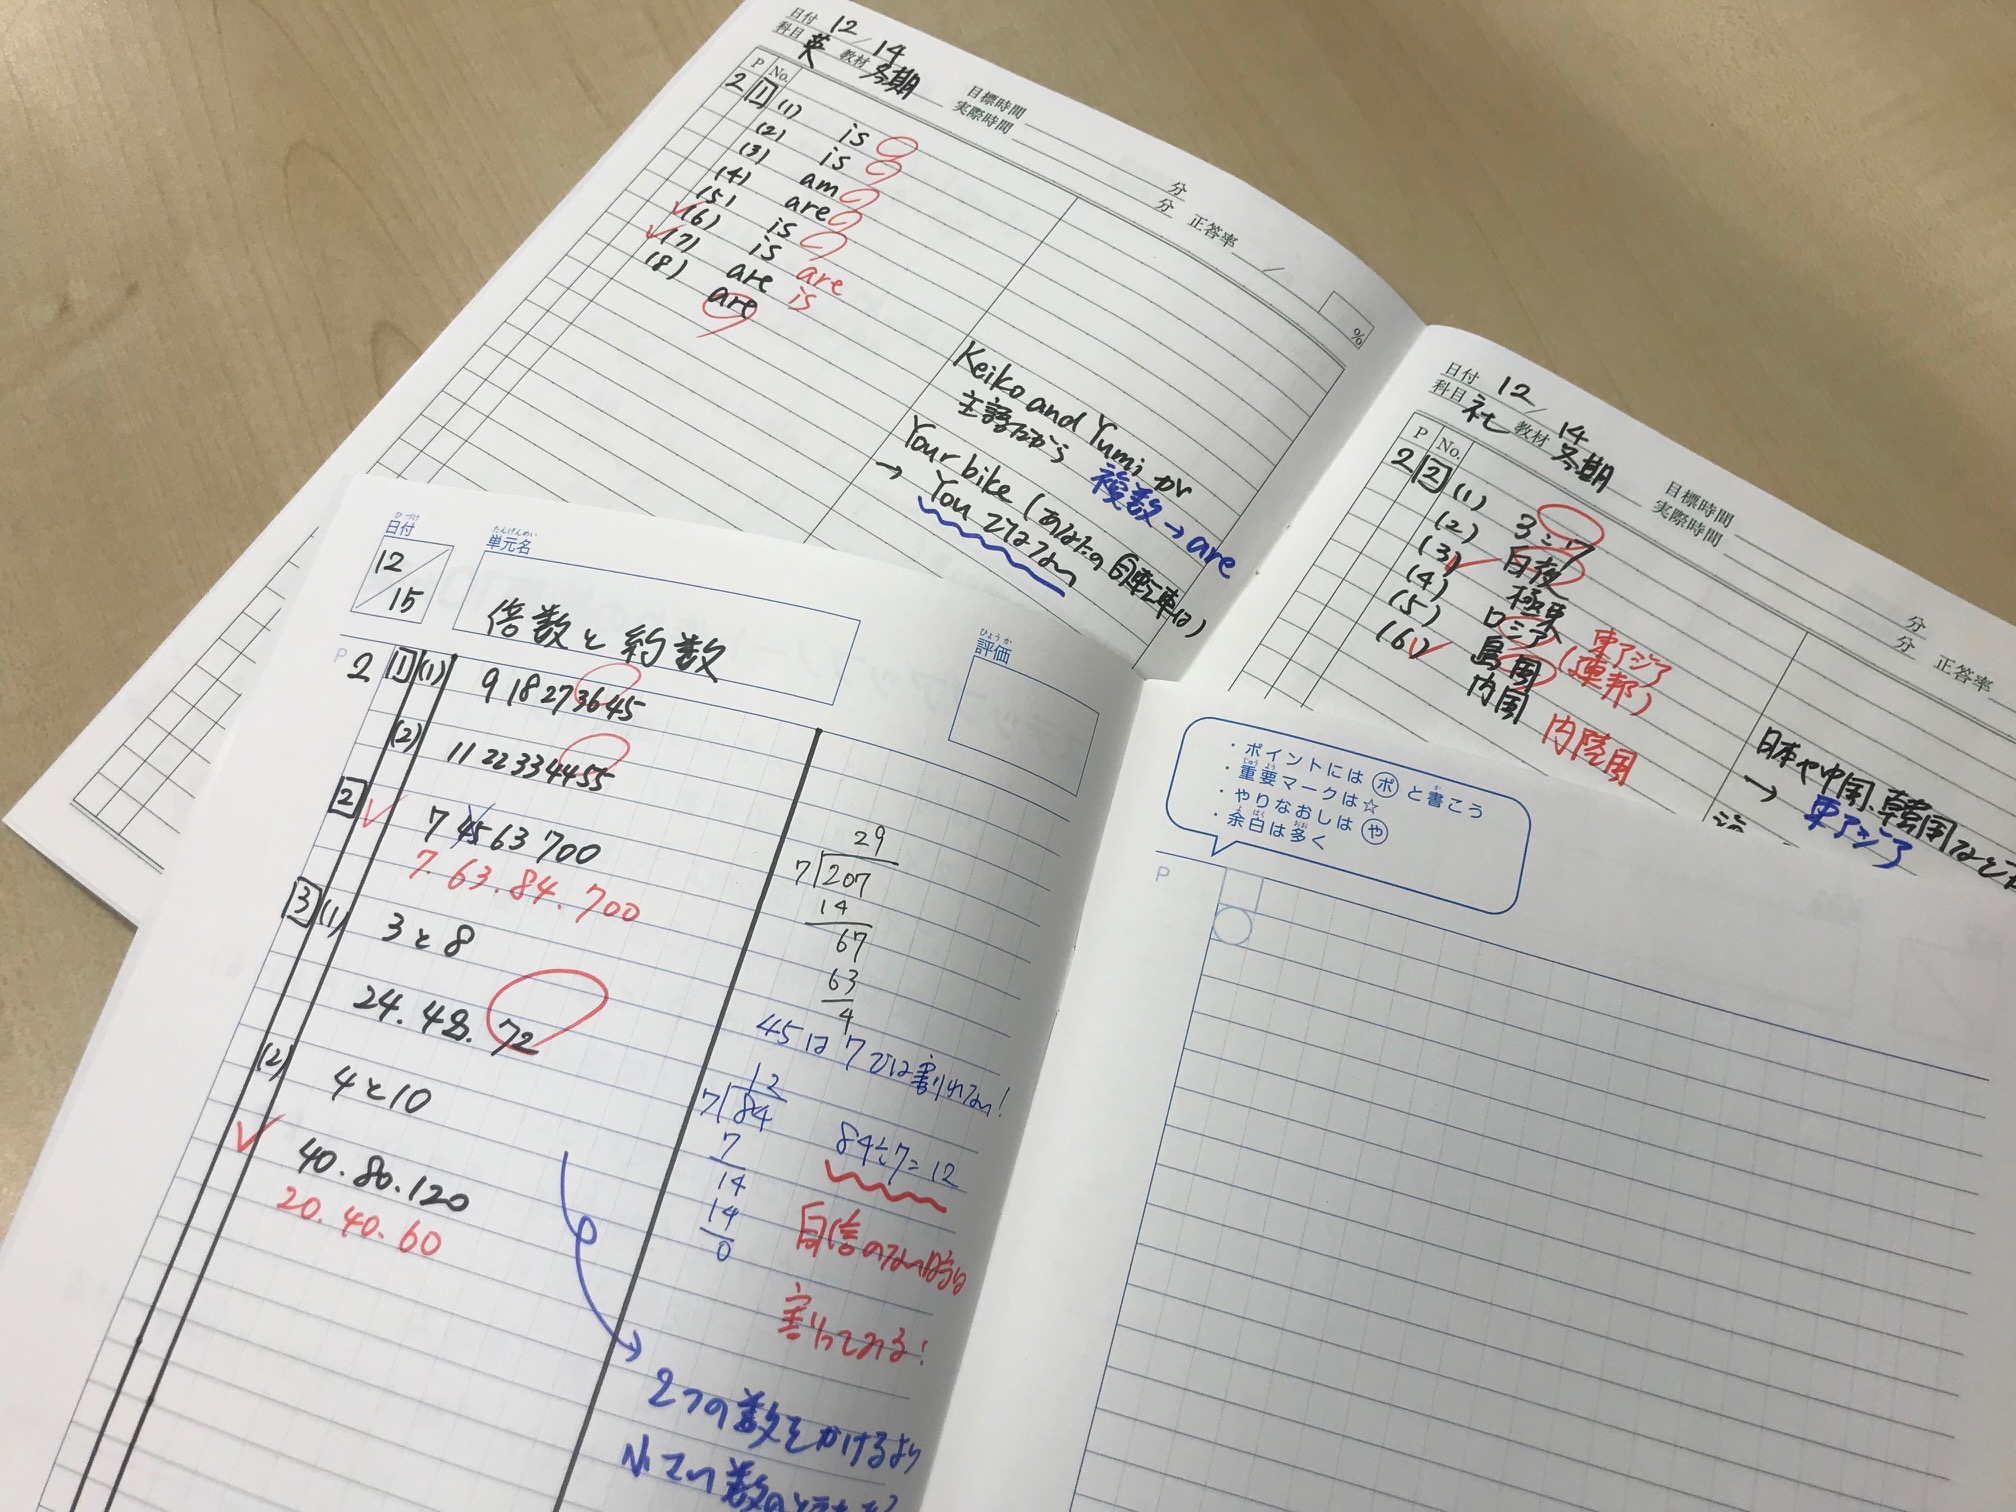 日付 12/14
科目 英 教材 冬期
目標時間 分
実際時間 分 正答率 / %
P No.
2 1 (1) is
(2) is
(3) am
(4) are
(5) is
(6) is are
(7) are is
(8) are
Keiko and Yumi が
主語だから 複数→are
Your bike (あなたの自転車は)
→ You ではない
日付 12/14
科目 社 教材 冬期
目標時間 分
実際時間 分 正答率
P No.
2 2 (1)
(2) 白夜
(3) 極東 東アジア
(4) ロシア (連邦)
(5) 島国
(6) 内国 内陸国
日本や中国、韓国など
→ 東アジア
ひづけ
日付
12/15
たんげんめい
単元名
倍数と約数
ひょうか
評価
P
2 1 (1) 9 18 27 36 45
(2) 11 22 33 44 55
2 7 45 63 700
7. 63. 84. 700
3 (1) 3と8
24. 48. 72
(2) 4と10
40. 80. 120
20. 40. 60
29
7 207
14
67
63
4
45は7では割れない!
12
7 84
7
14
14
0
84÷7=12
自信のない時は
割ってみる!
2つの数をかけるより
小さい数の
・ポイントには ポ と書こう
・重要マークは☆
・やりなおしは や
・余白は多く
P